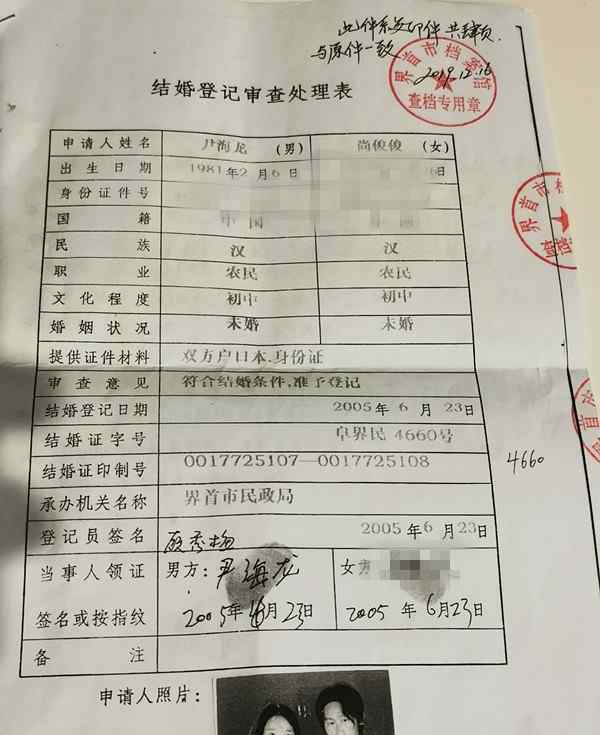 此件系复印件共肆页
与原件一致
2019.12.16
界首市档案馆
查档专用章
结婚登记审查处理表
申请人姓名 尹海龙 (男) 尚俊俊 (女)
出生日期 1981年2月6日 6日
身份证件号
国籍 中国
民族 汉 汉
职业 农民 农民
文化程度 初中 初中
婚姻状况 未婚 未婚
提供证件材料 双方户口本.身份证
审查意见 符合结婚条件,准予登记
结婚登记日期 2005年6月23日
结婚证字号 阜界民 4660号
4660
结婚证印制号 0017725107—0017725108
承办机关名称 界首市民政局
登记员签名 顾秀梅 2005年6月23日
当事人领证 男方:尹海龙 女
签名或按指纹 2005年6月23日 2005年6月23日
备注
申请人照片:
界首市档